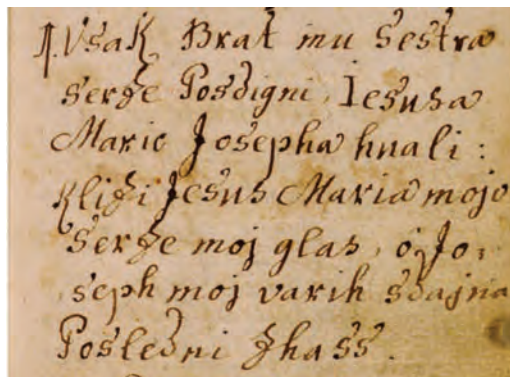 1. Vsak Brat inu Sestra
serze Posdigni, Iesusa
Marie Josepha hvali:
klizi Jesus Maria mojo
Serze moj glas, o Jo,
seph moj varih sdajna
Posledni zhass.